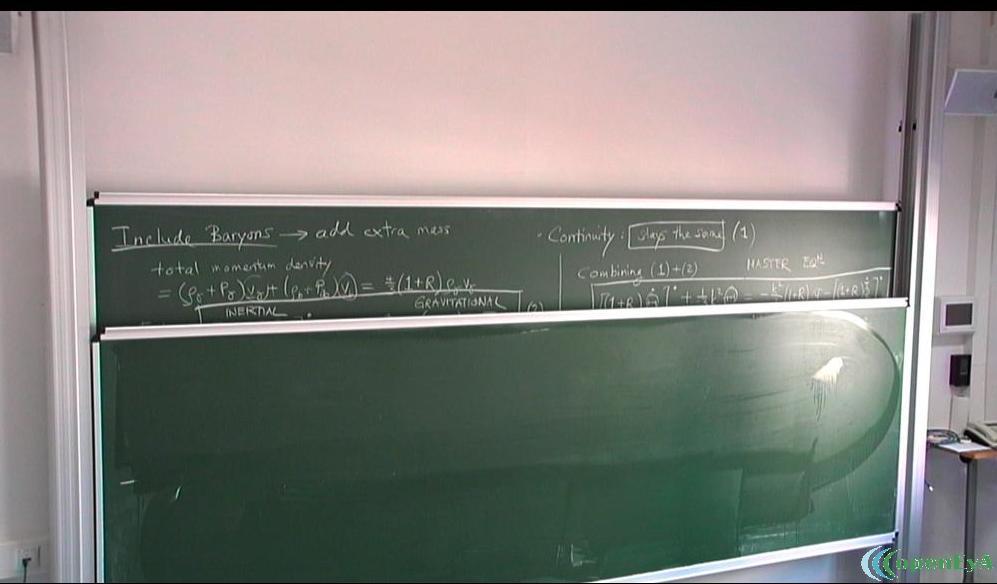 Include Baryons → add extra mass
total momentum density
= (ρ_γ + P_γ) v_γ + (ρ_b + P_b) v_b = 4/3 (1+R) ρ_γ v_γ
INERTIAL
GRAVITATIONAL
(2)
· Continuity: stays the same (1)
Combining (1)+(2) MASTER EQⁿ
[(1+R) Θ̇]˙ + 1/3 k² Θ = -k²/3 (1+R)